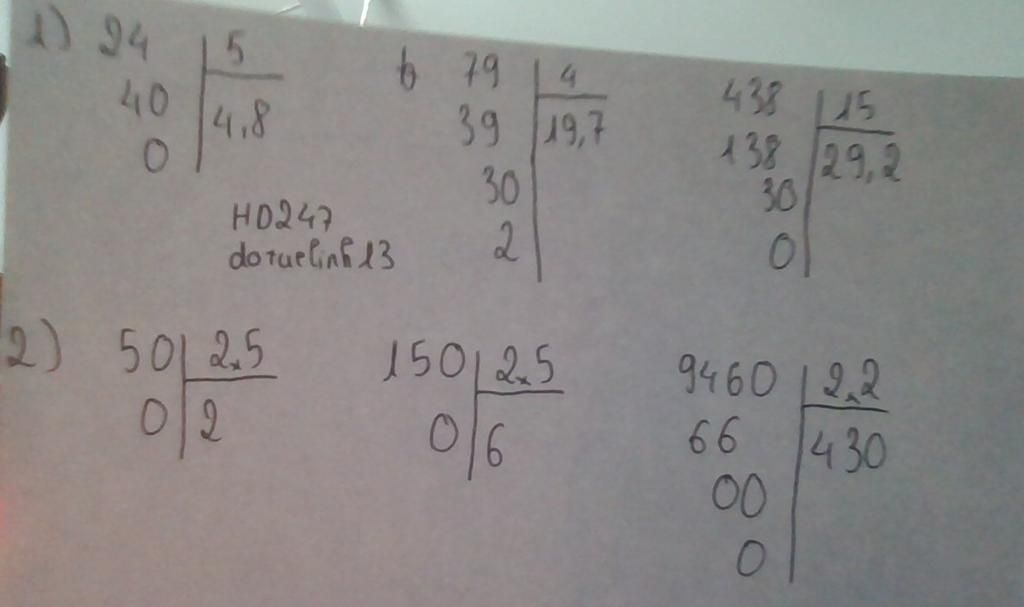 1) 24 5
40 4,8
0
b 79 4
39 19,7
30
2
438 15
138 29,2
30
0
HD247
2) 50 2,5
0 2
150 2,5
0 6
9460 2,2
66 430
00
0